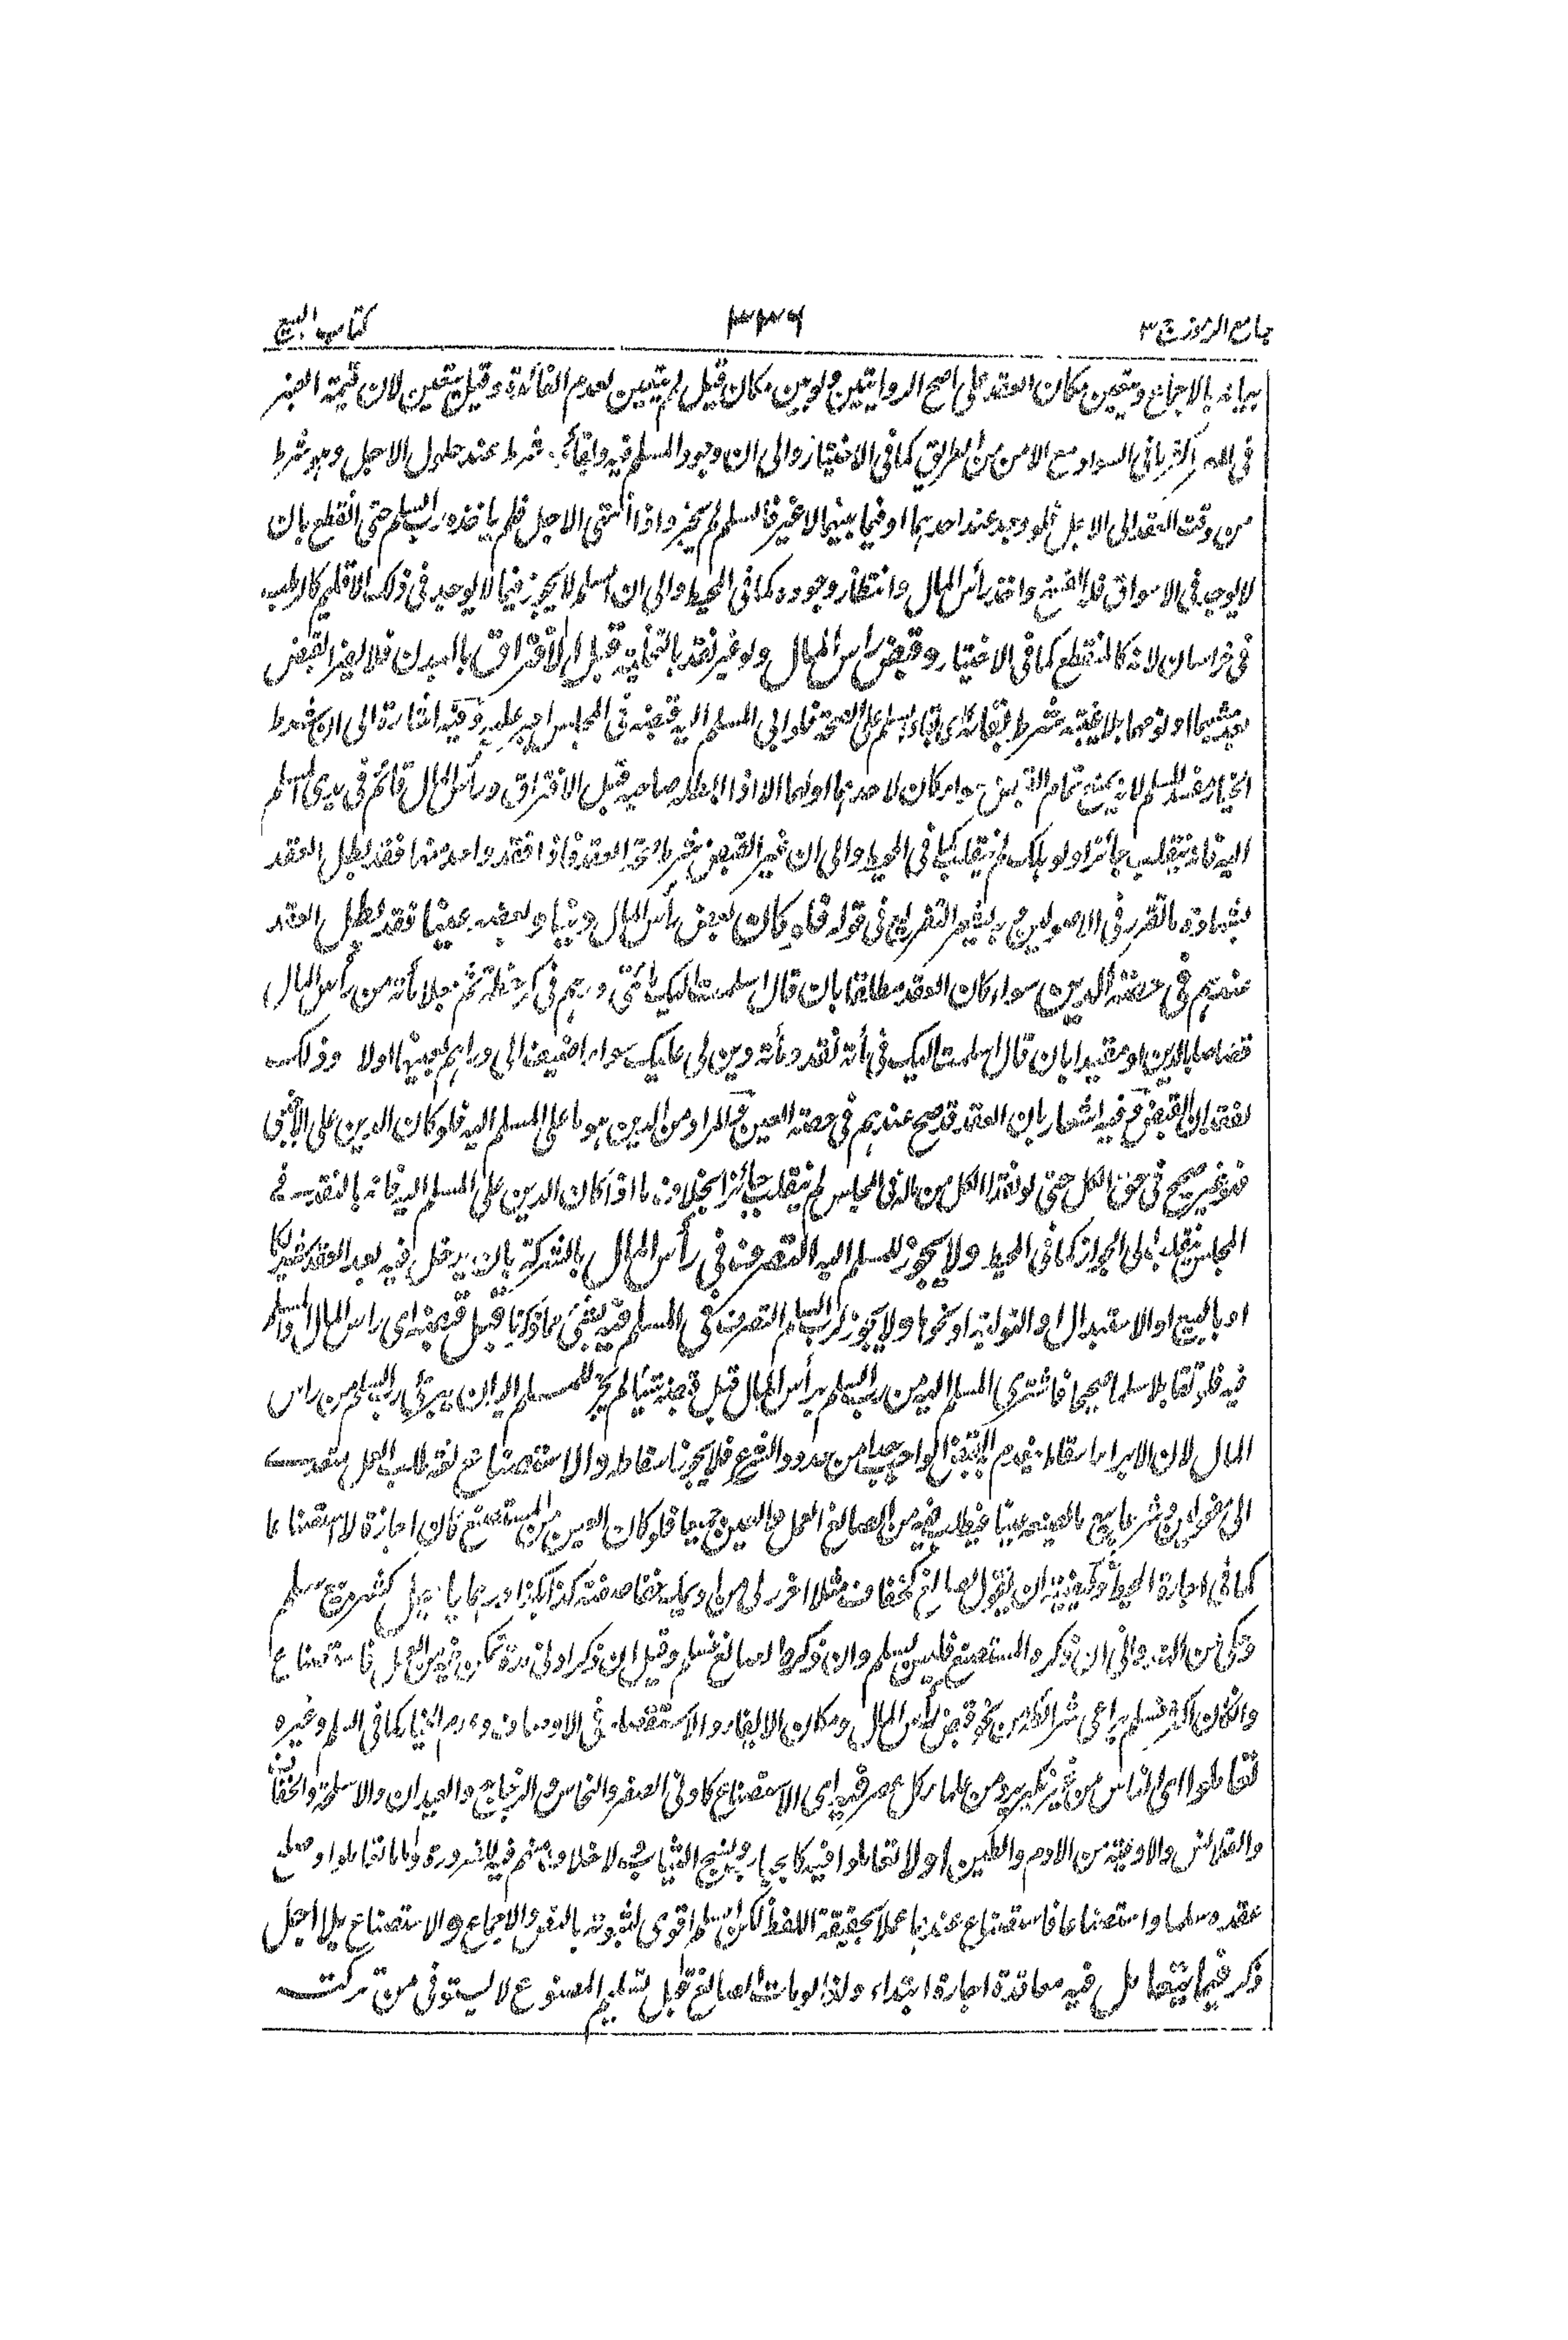 جامع الرموز ج ٣
٣٣٦
كتاب البيع
بيانه بالاجماع ويتعين مكان العقد على اصح الروايتين ولو بين مكان قيل لم يتعين لعدم الفائدة وقيل يتعين لان قيمة العنبر
فى المصر اكثر ما فى السواد مع الامن من الطريق كما فى الاختيار والى ان وجود المسلم فيه وبقائه شرط عند حلول الاجل وهو شرط
من وقت العقد الى الاجل فلو وجد عند احدهما او فيما بينهما لا غير فالسلم لم يجز واذا انتهى الاجل فلم ياخذه رب السلم حتى انقطع بان
لا يوجد فى الاسواق فله الفسخ واخذ رأس المال وانتظار وجوده كما فى المحيط والى ان السلم لا يجوز فيما لا يوجد فى ذلك الاقليم كالرطب
فى خراسان لانه كالمنقطع كما فى الاختيار وقبض راس المال ولو غير نقد بالتخلية قبل الافتراق بالبدن فلا يضر القبض
بعد مشيهما او نومهما بلا غيبة شرط بقائه اى بقاء السلم على الصحة فلو ابى المسلم اليه قبضه فى المجلس اجبر عليه وفيه اشارة الى ان شرط
الخيار مفسد للسلم لانه يمنع تمام القبض سواء كان لاحدهما او لهما الا اذا ابطله صاحبه قبل الافتراق ورأس المال قائم فى يدى المسلم
اليه فانه ينقلب جائزا ولو هلك لم ينقلب كما فى المحيط والى ان غير القبض شرط صحة العقد فاذا فقد واحد منها فقد بطل العقد
بشهادة ما تقرر فى الاصولين ويشير التفريع فى قوله فلو كان بعض رأس المال دينا وبعضه عينا فقد بطل العقد
عندهم فى حصة الدين سواء كان العقد مطلقا بان قال اسلمت اليك مائتى درهم فى كر حنطة ثم جعلا مائة من رأس المال
قصاصا بالدين او مقيدا بان قال اسلمت اليك فى مأة نقد ومأة دين لى عليك سواء اضيف الى دراهم بعينها اولا وذلك
لفقدان القبض وفيه اشعار بان العقد قد صح عندهم فى حصة العين والمراد من الدين هو ما على المسلم اليه فلو كان الدين على الاجنبى
فهو غير صحيح فى حق الكل حتى لو نقد الكل من ماله فى المجلس لم ينقلب جائزا بخلاف ما اذا كان الدين على المسلم اليه فانه بالنقد فى
المجلس ينقلب الى الجواز كما فى المحيط ولا يجوز للمسلم اليه التصرف فى رأس المال بالشركة بان يدخل فيه بعد العقد شريكا
او بالبيع او الاستبدال او التولية او نحوها ولا يجوز لرب السلم التصرف فى المسلم فيه بشئ مما ذكرنا قبل قبضه اى راس المال والمسلم
فيه فلو تقابلا سلما صحيحا فاشترى المسلم اليه من رب السلم برأس المال قبل قبضه شيئا لم يجز للمسلم اليه ان يبرئ رب السلم من راس
المال لان الابراء اسقاط فيعدم القبض الواجب حقا من حدود الشرع فلا يجوز اسقاطه والاستصناع لغة طلب العمل متعد
الى مفعولين وشرعا بيع ما يصنعه عينا فيطلب فيه من الصانع العمل والعين جميعا فلو كان العين من المستصنع كان اجارة لا استصناعا
كما فى اجارة المحيط وكيفيته ان يقول للصانع كخفاف مثلا اخرز لى من اديمك خفا صفته كذا بكذا درهما باجل كشهر مع سلم
وحكى عن الهندوانى ان ذكره المستصنع فليس بسلم وان ذكره الصانع فسلم وقيل ان ذكر ادنى مدة تمكن فيه من العمل فاستصناع
وان كان اكثر فسلم يراعى شرائطه من نحو قبض رأس المال ومكان الايفاء والاستقصاء فى الاوصاف وعدم الخيار كما فى السلم وغيره
تعاملوا اى الناس من غير نكير يرد من علماء كل عصر فيه اى الاستصناع كاوانى الصفر والنحاس والزجاج والعيدان والاسلحة والخفاف
والقلانس والاوعية من الادم والطين او لا تعاملوا فيه كالجباب ونسج الثياب لا خلاف منهم فيه للضرورة واما ما تعاملوا وصلح
عقده سلما واستصناعا فاستصناع عندهما عملا بحقيقة اللفظ لكن السلم اقوى لثبوته بالنص والاجماع والاستصناع بلا اجل
ذكر فيما يتعامل فيه معاقدة اجارة ابتداء ولذا لو مات الصانع قبل تسليم المصنوع لا يستوفى من تركته